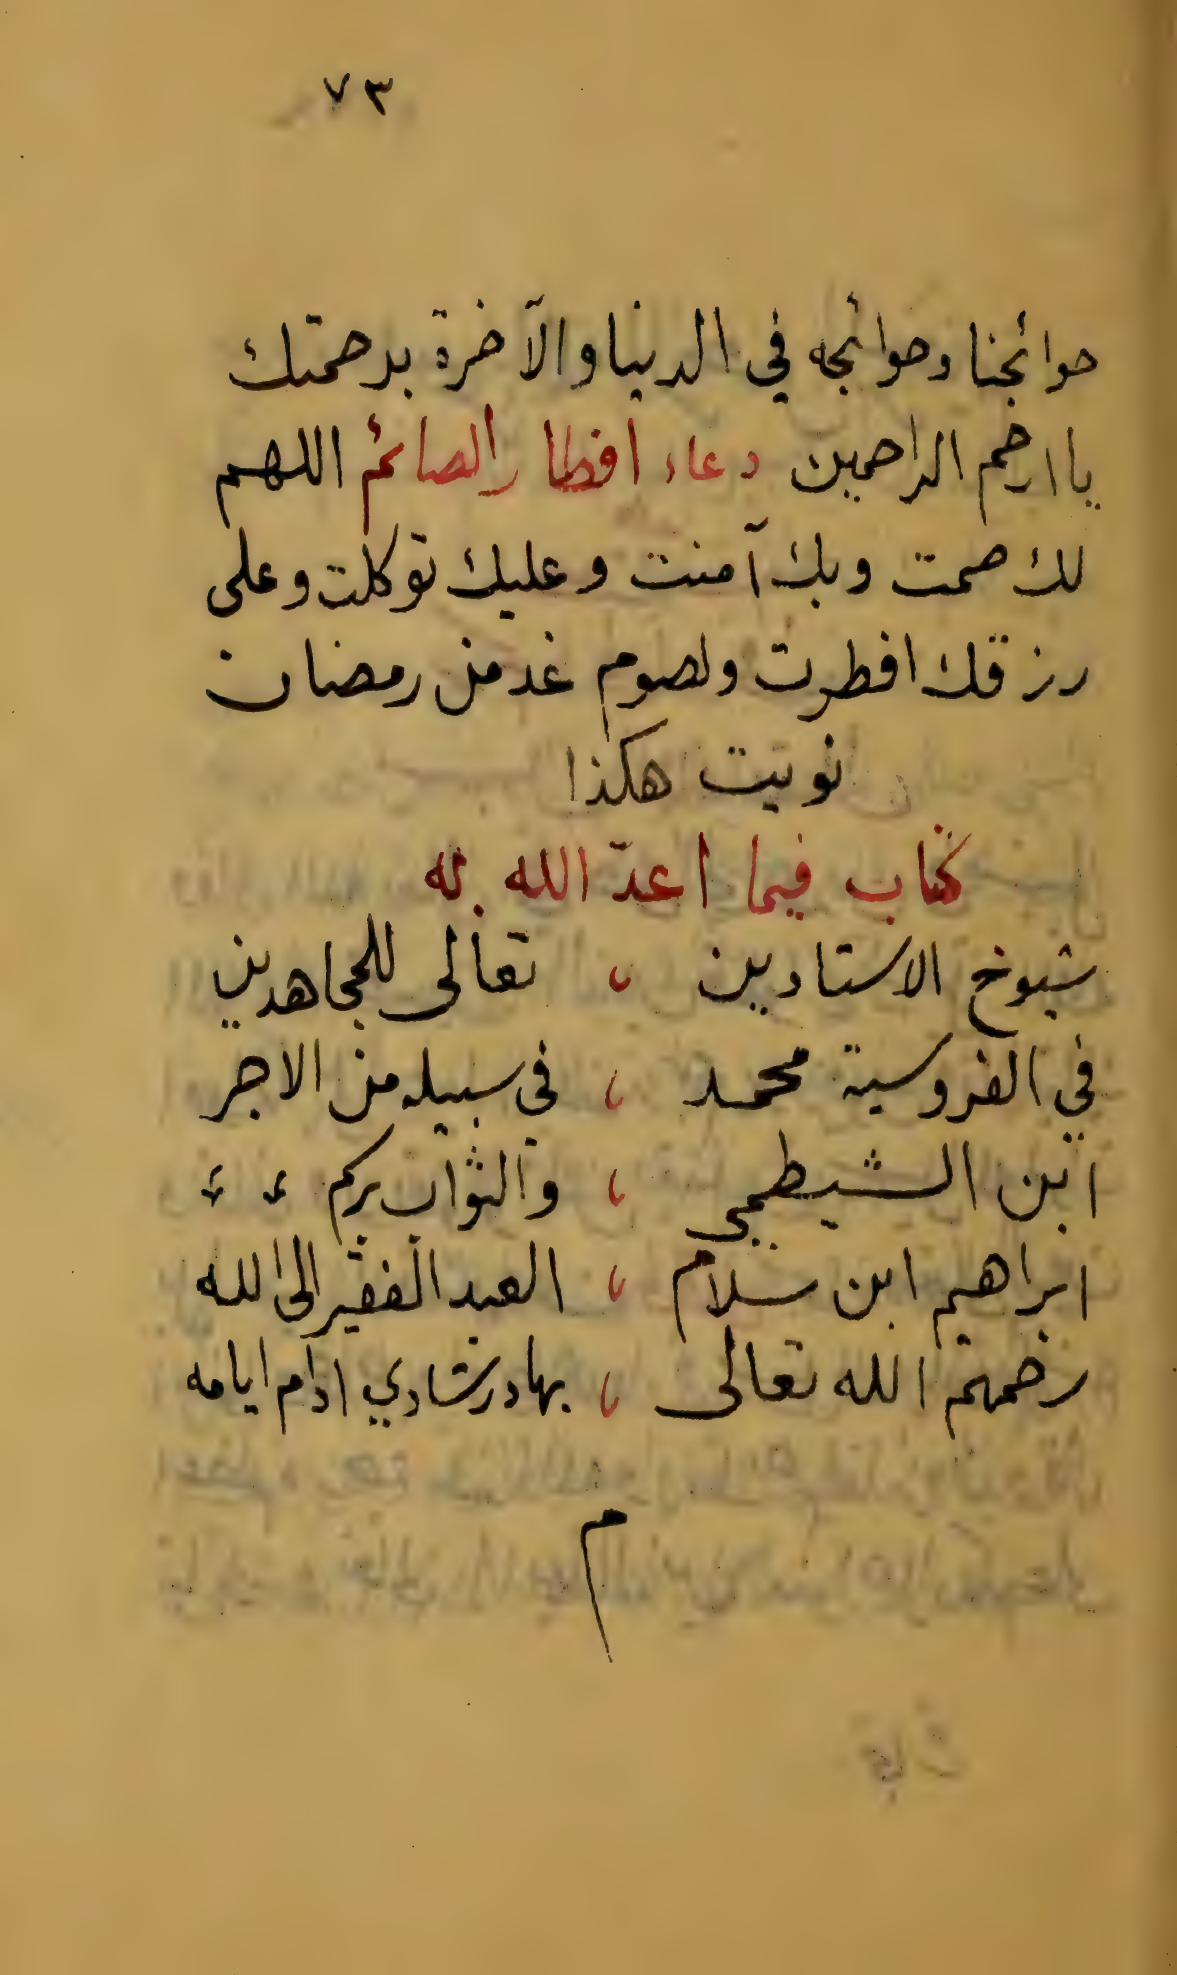 ٧٣
حوائجنا وحوائجه في الدنيا والآخرة برحمتك
يا ارحم الراحمين دعاء افطار الصائم اللهم
لك صمت وبك آمنت وعليك توكلت وعلى
رزقك افطرت ولصوم غد من رمضان
نويت هكذا
كتاب فيما اعدّ الله به
شيوخ الاستادين ، تعالى للمجاهدين
في الفروسية محمد ، في سبيله من الاجر
ابن الشيظمي ، والثواب بركم
ابراهيم ابن سلام ، العبد الفقير الى الله
رحمهم الله تعالى ، بهادرشادي ادام ايامه
م